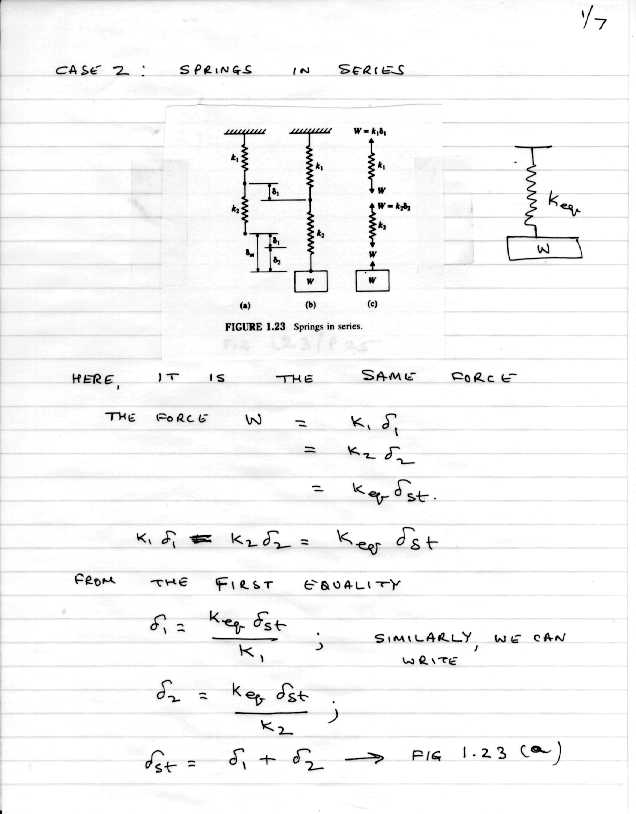 1/7
CASE 2 : SPRINGS IN SERIES
W = k₁δ₁
k₁ k₁ k₁
δ₁ W
W = k₂δ₂
k₂ k₂ k₂
δ₁
δst δ₂ W
W W
(a) (b) (c)
keq
W
FIGURE 1.23 Springs in series.
HERE, IT IS THE SAME FORCE
THE FORCE W = K₁ δ₁
= K₂ δ₂
= Keq δst.
K₁ δ₁ = K₂ δ₂ = Keq δst
FROM THE FIRST EQUALITY
δ₁ = Keq δst / K₁ ; SIMILARLY, WE CAN
WRITE
δ₂ = Keq δst / K₂ ;
δst = δ₁ + δ₂ → FIG 1.23 (a)